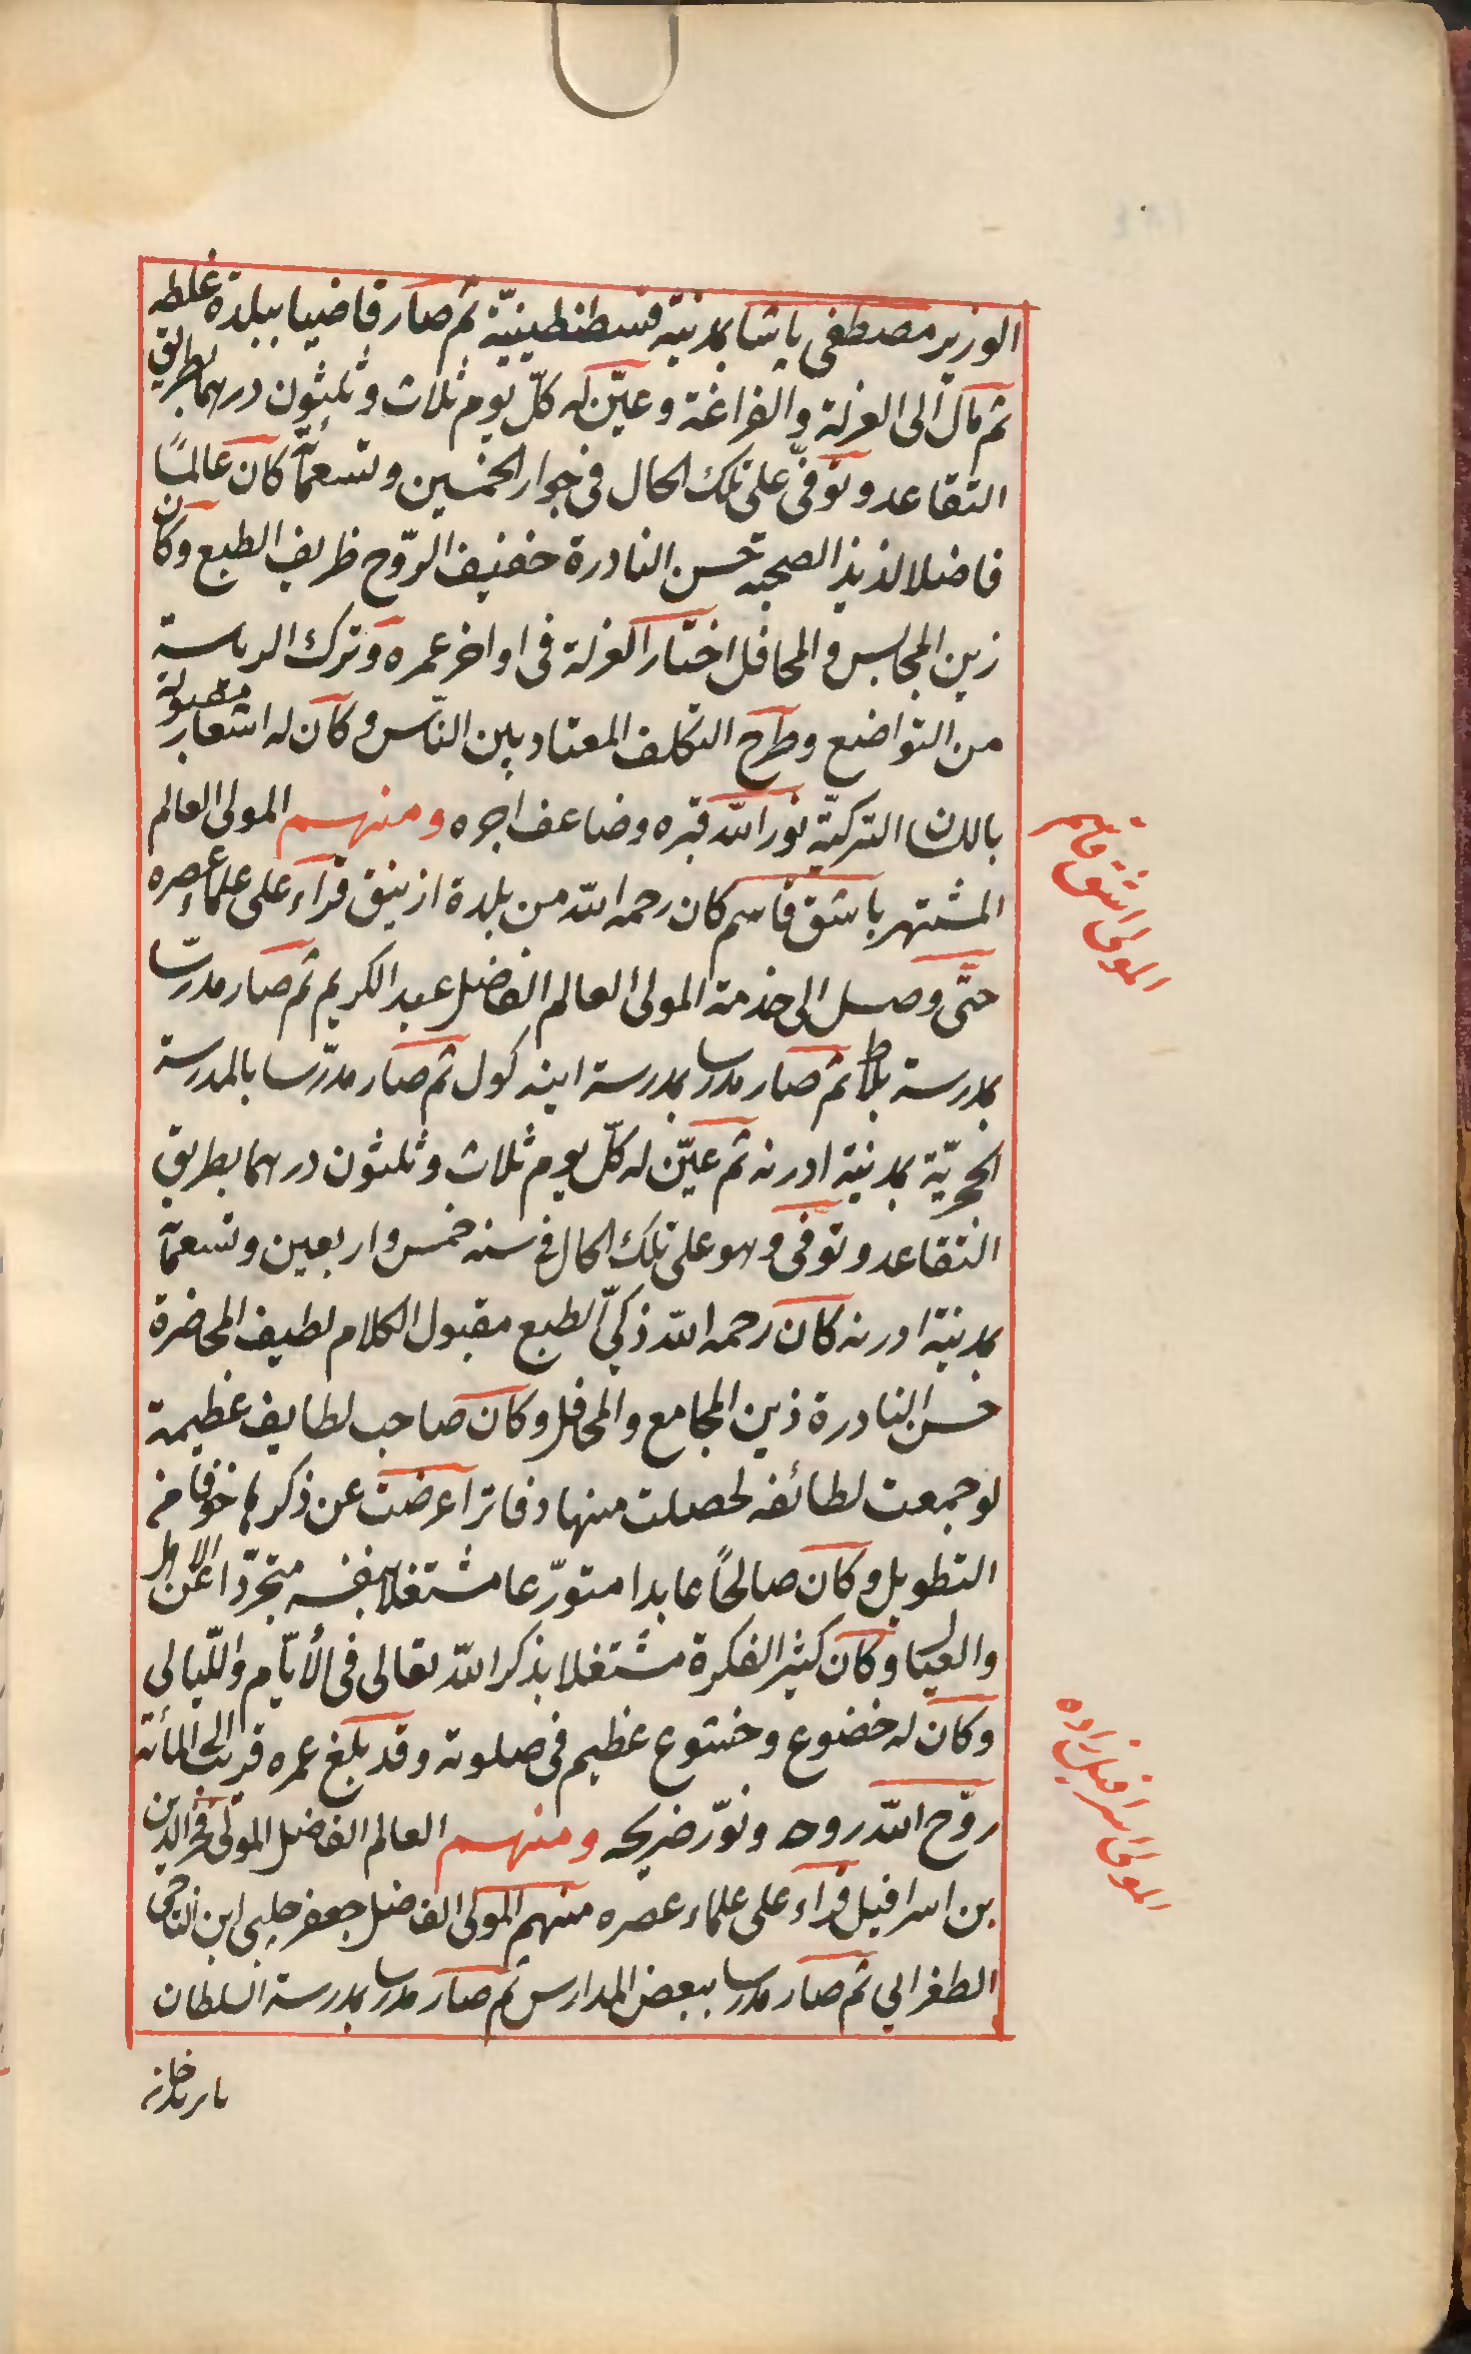 الوزير مصطفى پاشا بمدينة قسطنطينيّة ثم صار قاضيا ببلدة غلطه
ثم مال الى العزلة والفراغة وعيّن له كلّ يوم ثلاث وثلثون درهما بطريق
التقاعد وتوفّى على تلك الحال فى جوار الخمسين وتسعمائة كان عالمًا
فاضلا لذيذ الصحبة حسن النادرة خفيف الرّوح ظريف الطبع وكان
زين المجالس والمحافل اختار العزلة فى اواخر عمره وترك الرياسة
من التواضع وطرح التكلف المعتاد بين النّاس وكان له اشعار مقبولة
باللسان التركيّة نور الله قبره وضاعف اجره ومنهم المولى العالم
المشتهر باشق قاسم كان رحمه الله من بلدة ازنيق قراء على علماء عصره
حتّى وصل الى خدمة المولى العالم الفاضل عبد الكريم ثم صار مدرّسا
بمدرسة بلاط ثم صار مدرسا بمدرسة اينه كول ثم صار مدرّسا بالمدرسة
الحجريّة بمدينة ادرنه ثم عيّن له كلّ يوم ثلاث وثلثون درهما بطريق
التقاعد وتوفى وهو على تلك الحال فى سنه خمس واربعين وتسعمائة
بمدينة ادرنه كان رحمه الله ذكىّ الطبع مقبول الكلام لطيف المحاضرة
حسن النادرة زين المجامع والمحافل وكان صاحب لطايف عظيمة
لو جمعت لطائفه لحصلت منها دفاتر اعرضت عن ذكرها خوفا من
التطويل وكان صالحًا عابدا متورّعا مشتغلا بنفسه متجرّدا عن الاهل
والعيال وكان كثير الفكرة مشتغلا بذكر الله تعالى فى الأيّام واللّيالى
وكان له خضوع وخشوع عظيم فى صلوته وقد بلغ عمره قريبا الى المأته
روّح الله روحه ونوّر ضريحه ومنهم العالم الفاضل المولى فخر الدين
بن اسرافيل قراء على علماء عصره منهم المولى الفاضل جعفر چلبى ابن التاجى
الطغرالي ثم صار مدرسا ببعض المدارس ثم صار مدرسا بمدرسة السلطان
المولى اشق قاسم
المولى اسرافيل زاده